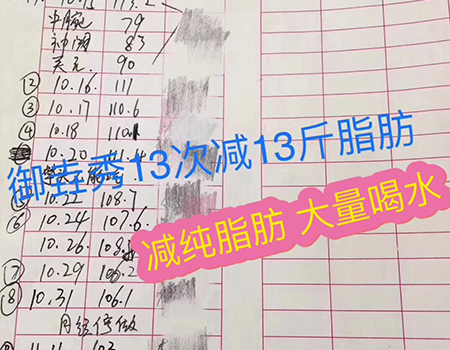 10.15 113.2
中脘 79
神阙 83
关元 90
② 10.16. 111
③ 10.17 110.6
④ 10.18
10.20
御垚秀13次减13斤脂肪
10.22 108.7
⑥ 10.24 107.6
减纯脂肪 大量喝水
10.26
⑦ 10.29 106.2
⑧ 10.31 106.1
月经停做